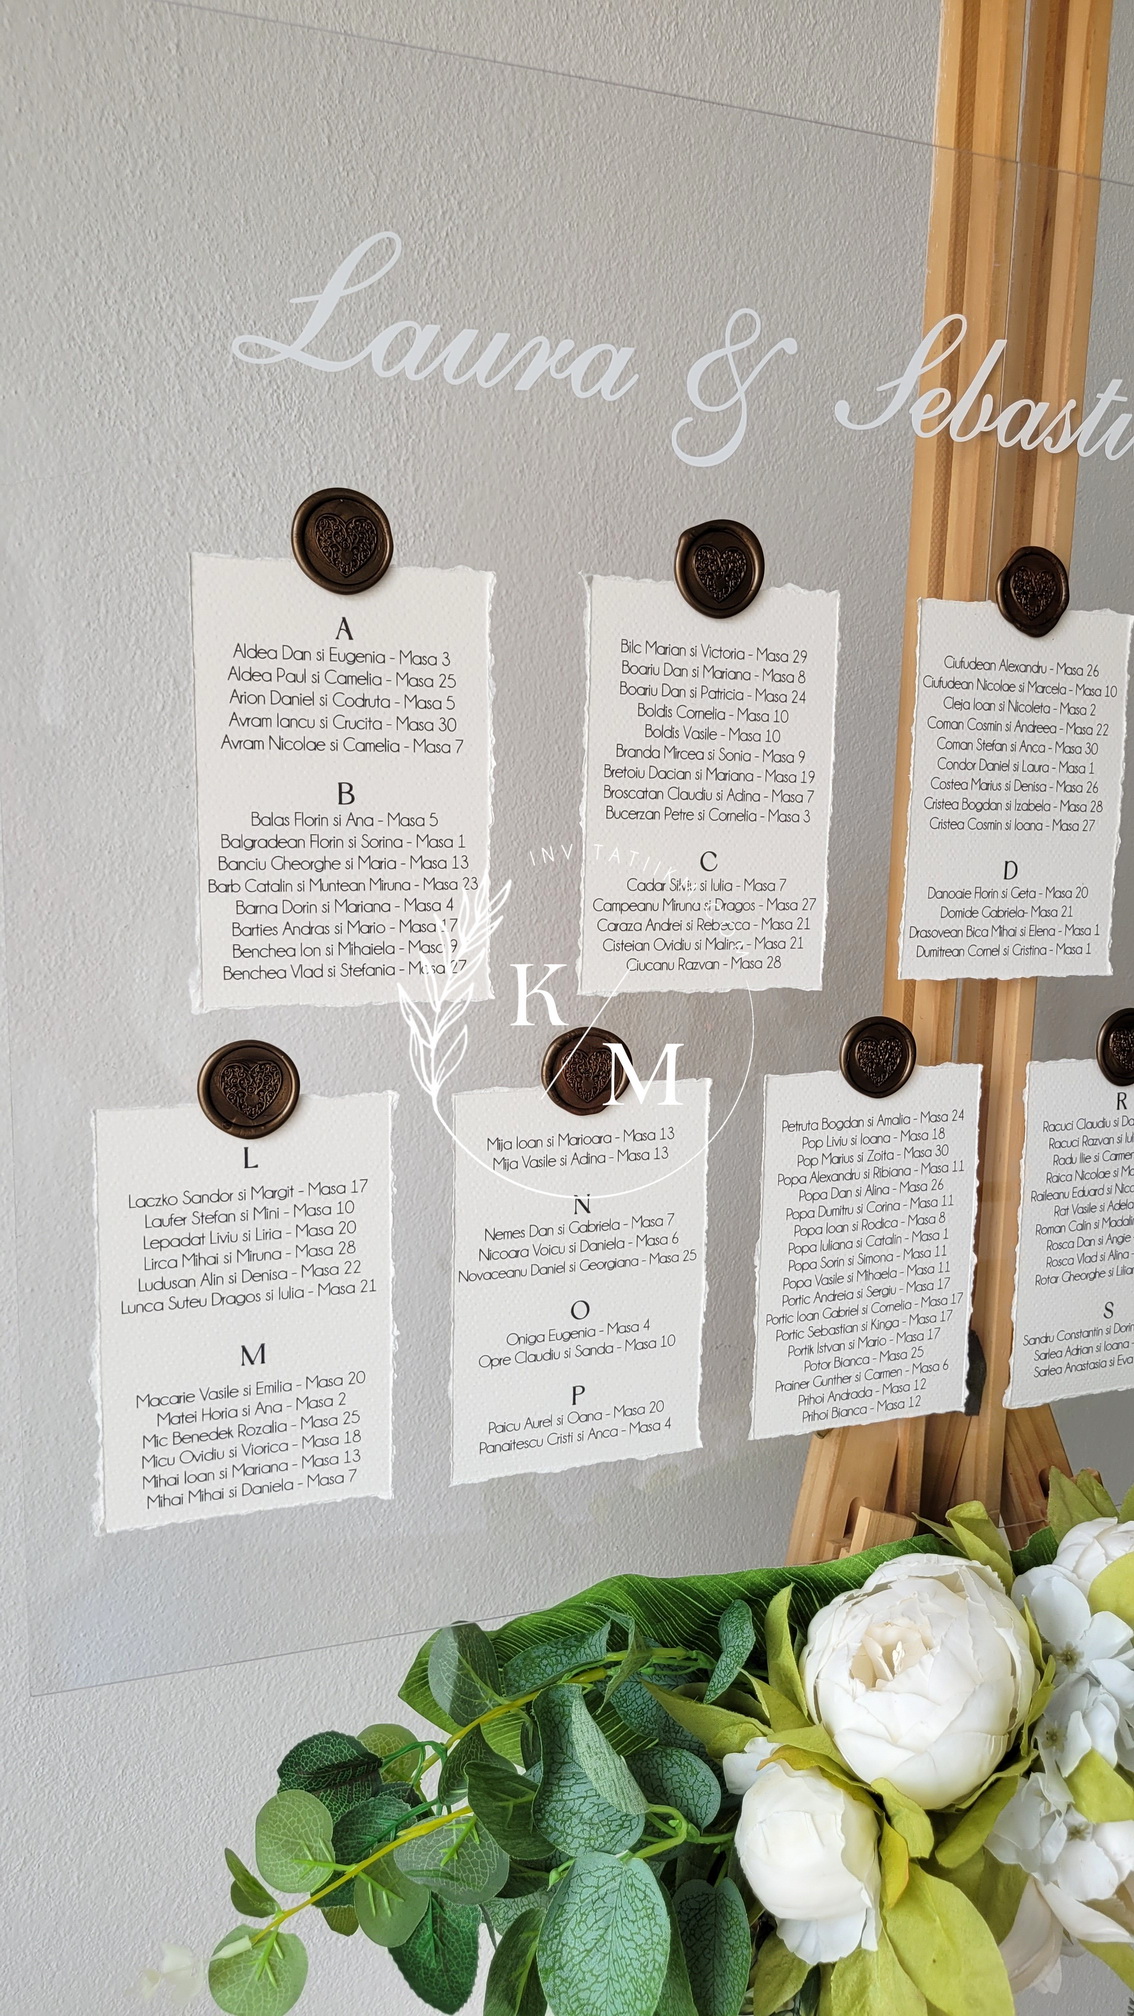 Laura & Sebasti
A
Aldea Dan si Eugenia - Masa 3
Aldea Paul si Camelia - Masa 25
Arion Daniel si Codruta - Masa 5
Avram Iancu si Crucita - Masa 30
Avram Nicolae si Camelia - Masa 7
B
Balas Florin si Ana - Masa 5
Balgradean Florin si Sorina - Masa 1
Banciu Gheorghe si Maria - Masa 13
Barb Catalin si Muntean Miruna - Masa 23
Barna Dorin si Mariana - Masa 4
Barties Andras si Mario - Masa 17
Benchea Ion si Mihaiela - Masa 9
Benchea Vlad si Stefania - Masa 27
Bilc Marian si Victoria - Masa 29
Boariu Dan si Mariana - Masa 8
Boariu Dan si Patricia - Masa 24
Boldis Cornelia - Masa 10
Boldis Vasile - Masa 10
Branda Mircea si Sonia - Masa 9
Bretoiu Dacian si Mariana - Masa 19
Broscatan Claudiu si Adina - Masa 7
Bucerzan Petre si Cornelia - Masa 3
C
Cadar Silviu si Iulia - Masa 7
Campeanu Miruna si Dragos - Masa 27
Caraza Andrei si Rebecca - Masa 21
Cisteian Ovidiu si Malina - Masa 21
Ciucanu Razvan - Masa 28
Ciufudean Alexandru - Masa 26
Ciufudean Nicolae si Marcela - Masa 10
Cleja Ioan si Nicoleta - Masa 2
Coman Cosmin si Andreea - Masa 22
Coman Stefan si Anca - Masa 30
Condor Daniel si Laura - Masa 1
Costea Marius si Denisa - Masa 26
Cristea Bogdan si Izabela - Masa 28
Cristea Cosmin si Ioana - Masa 27
D
Danoaie Florin si Geta - Masa 20
Domide Gabriela- Masa 21
Drasovean Bica Mihai si Elena - Masa 1
Dumitrean Cornel si Cristina - Masa 1
K
M
L
Laczko Sandor si Margit - Masa 17
Laufer Stefan si Mini - Masa 10
Lepadat Liviu si Liria - Masa 20
Lirca Mihai si Miruna - Masa 28
Ludusan Alin si Denisa - Masa 22
Lunca Suteu Dragos si Iulia - Masa 21
M
Macarie Vasile si Emilia - Masa 20
Matei Horia si Ana - Masa 2
Mic Benedek Rozalia - Masa 25
Micu Ovidiu si Viorica - Masa 18
Mihai Ioan si Mariana - Masa 13
Mihai Mihai si Daniela - Masa 7
Mija Ioan si Marioara - Masa 13
Mija Vasile si Adina - Masa 13
N
Nemes Dan si Gabriela - Masa 7
Nicoara Voicu si Daniela - Masa 6
Novaceanu Daniel si Georgiana - Masa 25
O
Oniga Eugenia - Masa 4
Opre Claudiu si Sanda - Masa 10
P
Paicu Aurel si Oana - Masa 20
Panaitescu Cristi si Anca - Masa 4
Petruta Bogdan si Amalia - Masa 24
Pop Liviu si Ioana - Masa 18
Pop Marius si Zoita - Masa 30
Popa Alexandru si Ribiana - Masa 11
Popa Dan si Alina - Masa 26
Popa Dumitru si Corina - Masa 11
Popa Ioan si Rodica - Masa 8
Popa Iuliana si Catalin - Masa 1
Popa Sorin si Simona - Masa 11
Popa Vasile si Mihaela - Masa 11
Portic Andreia si Sergiu - Masa 17
Portic Ioan Gabriel si Cornelia - Masa 17
Portic Sebastian si Kinga - Masa 17
Portik Istvan si Mario - Masa 17
Potor Bianca - Masa 25
Prainer Gunther si Carmen - Masa 6
Prihoi Andrada - Masa 12
Prihoi Bianca - Masa 12
R
Racuci Claudiu si Do
Racuci Razvan si Iul
Radu Ilie si Carmen
Raica Nicolae si Ma
Raileanu Eduard si Nico
Rat Vasile si Adela
Roman Calin si Madalin
Rosca Dan si Angie
Rosca Vlad si Alina -
Rotar Gheorghe si Lilian
S
Sandru Constantin si Dorin
Sarlea Adrian si Ioana -
Sarlea Anastasia si Eva